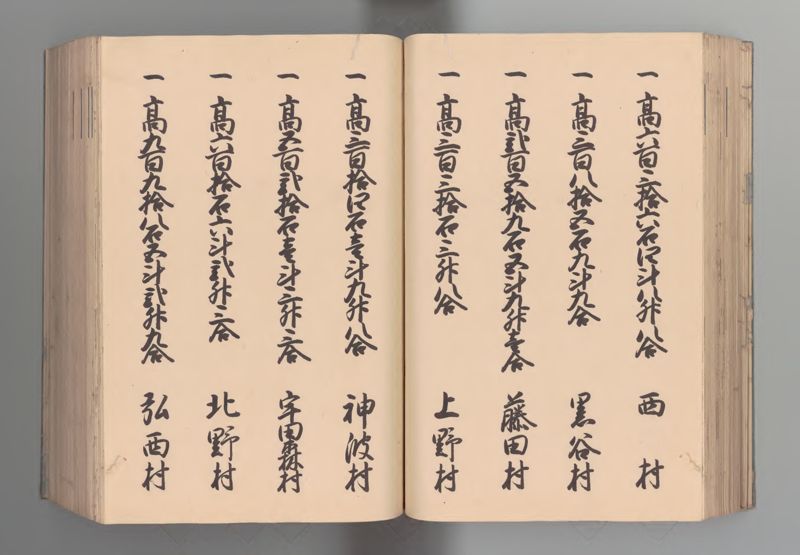 一 高六百三拾六石四斗八升八合 西村
一 高三百八拾五石九斗九合 黒谷村
一 高弐百五拾九石五斗九升壱合 藤田村
一 高三百三拾石三升八合 上野村
一 高三百拾四石壱斗九升八合 神波村
一 高五百弐拾石壱斗三升三合 宇田森村
一 高六百拾石六斗弐升三合 北野村
一 高九百九拾八石五斗弐升九合 弘西村